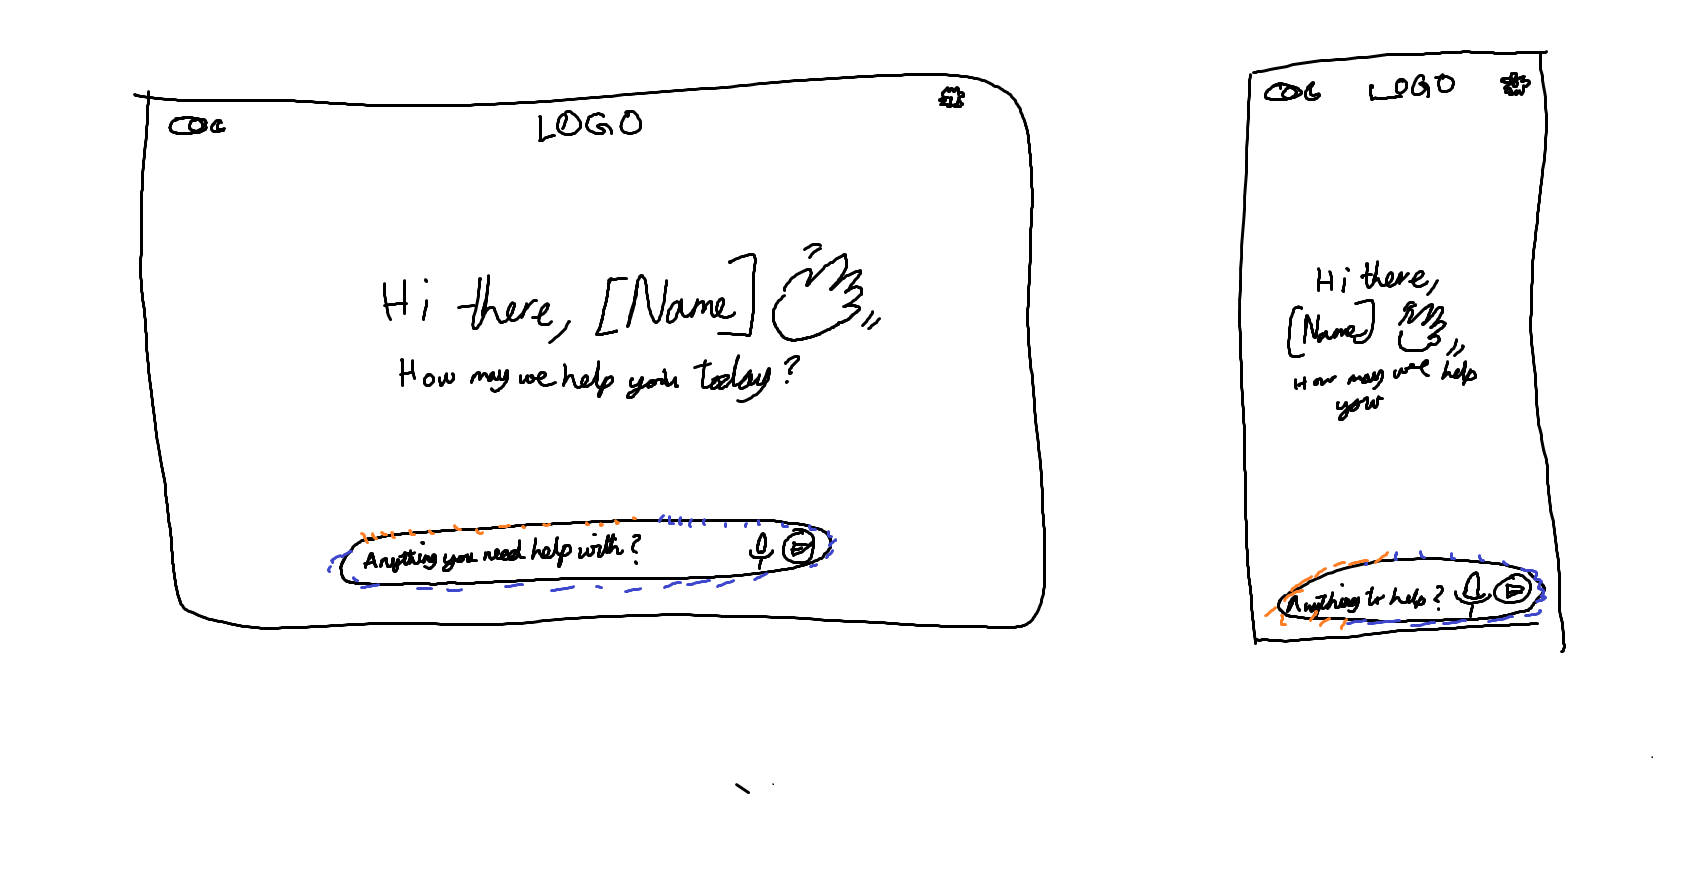 LOGO
Hi there, [Name]
How may we help you today?
Anything you need help with?
LOGO
Hi there,
[Name]
How may we help
you
Anything to help?